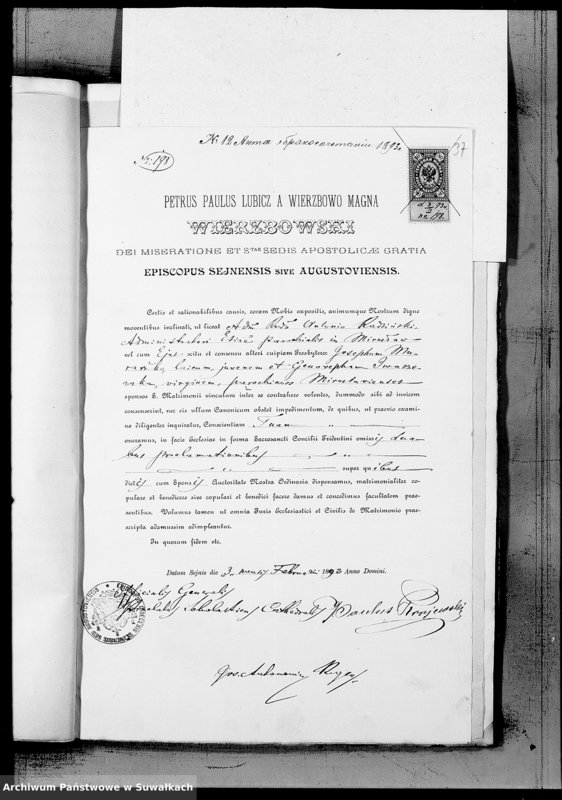 К 12 Актъ бракосочетанія 1893 г.
37
Nr. 198
198.
PETRUS PAULUS LUBICZ A WIERZBOWO MAGNA
WIERZBOWSKI
DEI MISERATIONE ET Sᵀᴬᴱ SEDIS APOSTOLICÆ GRATIA
EPISCOPUS SEJNENSIS SIVE AUGUSTOVIENSIS.
Certis et rationabilibus causis, coram Nobis expositis, animumque Nostrum digne
moventibus inclinati, ut liceat Adm Rndo Antonio Radziński
Administratori Eccl parochialis in Mirosław
vel cum Ejus scitu et consensu alteri cuipiam Presbytero Josephum Mu-
liberum, juvenem et Genovepham Iwano-
virginem, parochianos Miroslavienses
sponsos S. Matrimonii vinculum inter se contrahere volentes, dummodo sibi ad invicem
consenserint, nec eis ullum Canonicum obstet impedimentum, de quibus, ut praevio exami-
ne diligenter inquiratur, Conscientiam Tuam
oneramus, in facie Ecclesiae in forma Sacrosancti Concilii Tridentini omissis dua-
bus proclamationibus
super quibus
dictis cum Sponsis Auctoritate Nostra Ordinaria dispensamus, matrimonialiter co-
pulare et benedicere sive copulari et benedici facere damus et concedimus facultatem prae-
sentibus. Volumus tamen ut omnia Juris Ecclesiastici et Civilis de Matrimonio prae-
scripta adamussim adimpleantur.
In quorum fidem etc.
Datum Sejnis dia 3 mensis Februarii 1893 Anno Domini.
Officialis Generalis
Praelatus Scholasticus Cathedralis Paulus Krajewski
Jos. Antonowicz
Archiwum Państwowe w Suwałkach